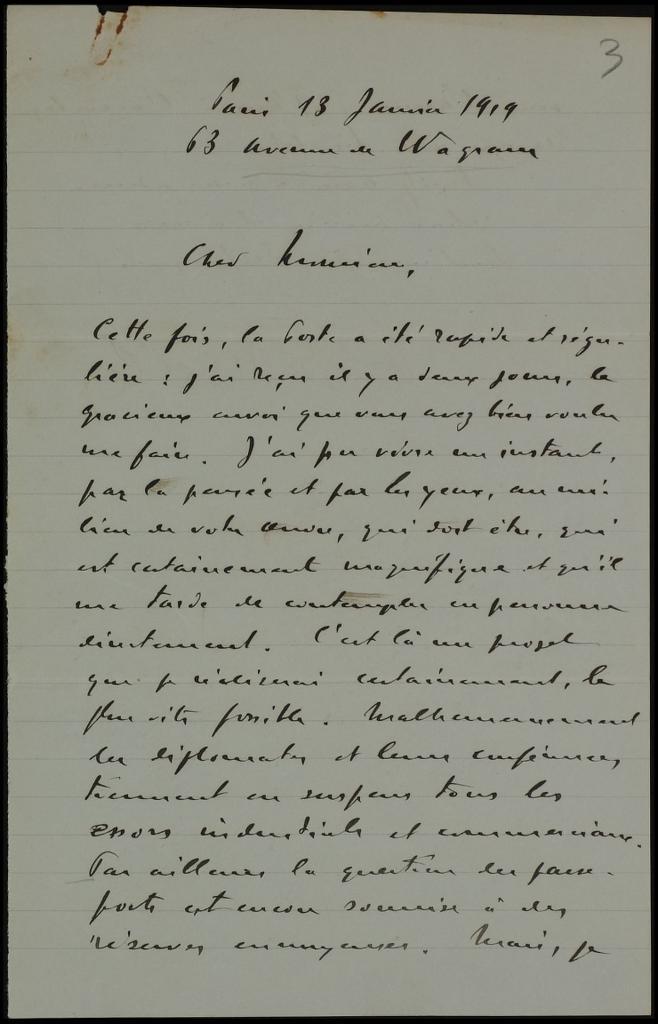 3
Paris 13 Janvier 1919
63 Avenue de Wagram
Cher Monsieur,
Cette fois, la Poste a été rapide et régu-
lière : j'ai reçu il y a deux jours, le
gracieux envoi que vous avez bien voulu
me faire. J'ai pu vivre un instant,
par la pensée et par les yeux, au mi-
lieu de votre œuvre, qui doit être, qui
est certainement magnifique et qu'il
me tarde de contempler en personne
directement. C'est là un projet
que je réaliserai certainement, le
plus vite possible. Malheureusement
les diplomates et leurs conférences
tiennent en suspens tous les
essors industriels et commerciaux.
Par ailleurs la question des passe-
ports est encore soumise à des
réserves ennuyeuses. Mais, je